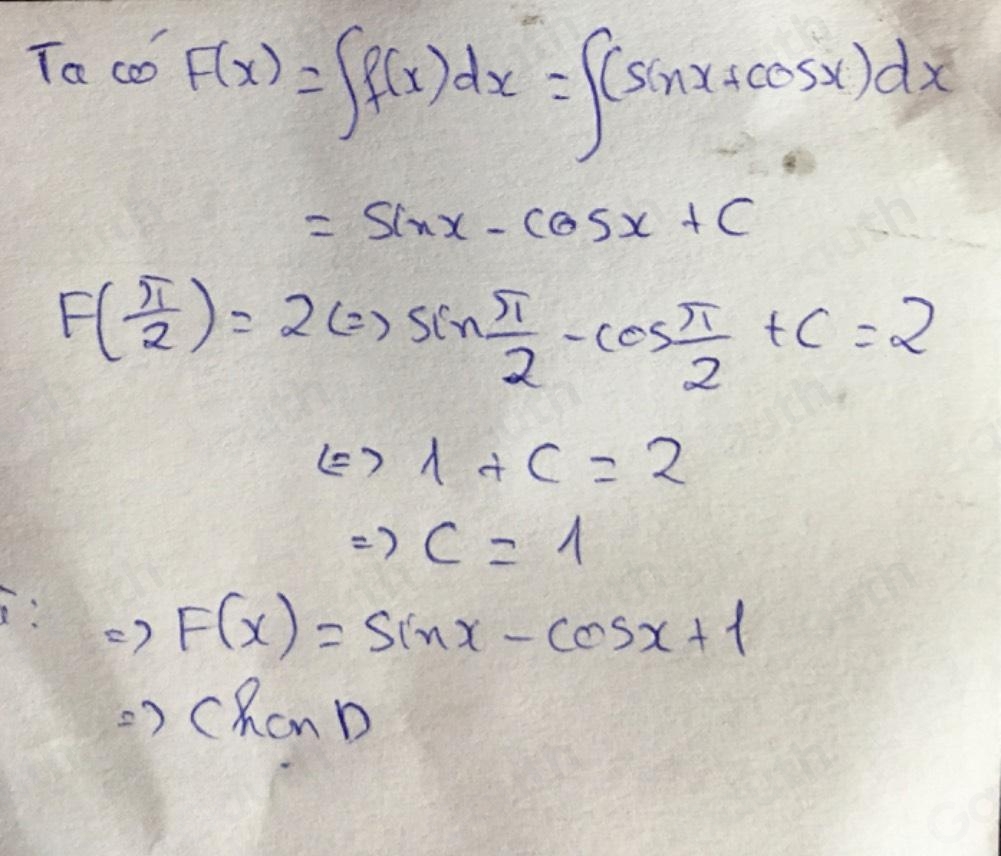 Ta có F(x) = ∫f(x)dx = ∫(sinx+cosx)dx
= sinx - cosx + C
F(π/2) = 2 <=> sin π/2 - cos π/2 + C = 2
<=> 1 + C = 2
=> C = 1
=> F(x) = sinx - cosx + 1
=> Chọn D